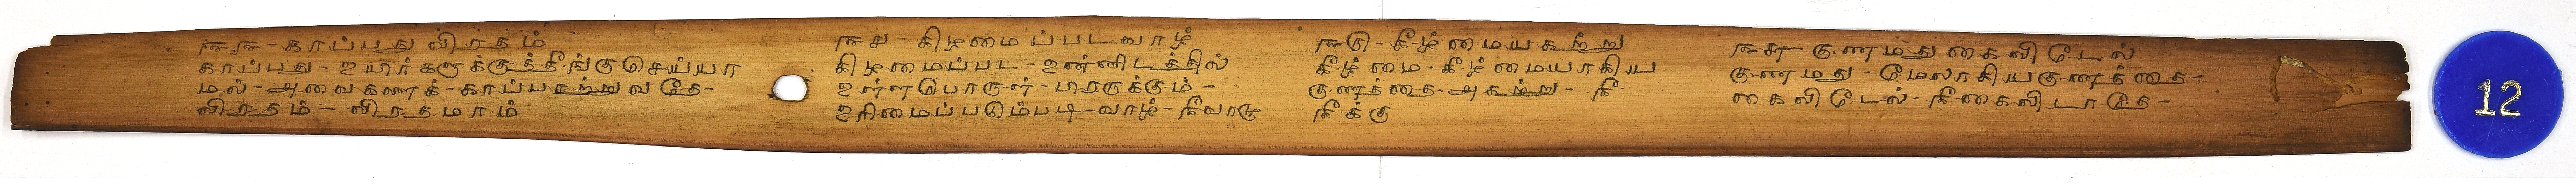 ௩௩-காப்பதுவிரதம்
காப்பது-உயிர்களுக்குத்தீங்குசெய்யா
மல்-அவைகளைக்-காப்பாற்றுவதே-
விரதம்-விரதமாம்
௩௪-கிழமைப்படவாழ்
கிழமைப்பட-உன்னிடத்தில்
உள்ளபொருள்-பிறருக்கும்-
உரிமைப்படும்படி-வாழ்-நீவாழு
௩௫-கீழ்மையகற்று
கீழ்மை-கீழ்மையாகிய
குணத்தை-அகற்று-நீ
நீக்கு
௩௬ குணமதுகைவிடேல்
குணமது-மேலாகியகுணத்தை-
கைவிடேல்-நீகைவிடாதே-
12